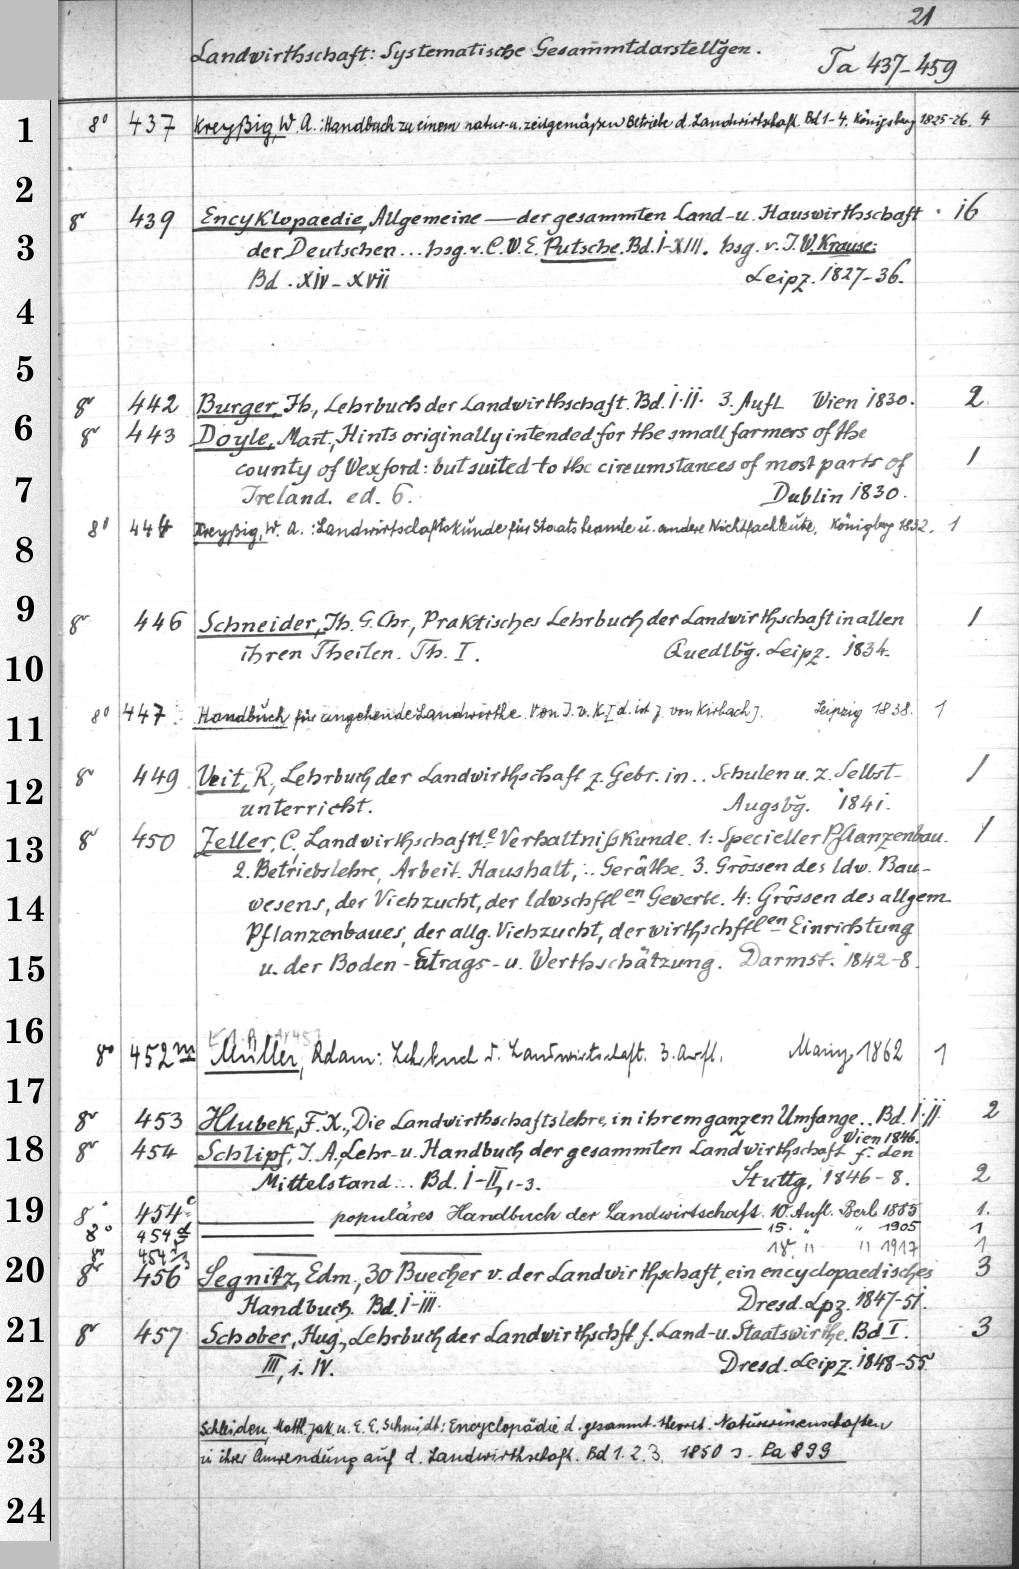 21
Landwirthschaft: Systematische Gesammtdarstellg̃en.
Ta 437-459
1
8° 437 Kreyßig, W. A.: Handbuch zu einem natur- u. zeitgemäßen Betriebe d. Landwirtschaft. Bd 1-4. Königsberg 1825-26. 4
2
8° 439 Encyklopaedie, Allgemeine — der gesammten Land- u. Hauswirthschaft . 16
3
der Deutschen ... hsg. v. C. W. E. Putsche. Bd. I-XIII. hsg. v. J. W. Krause:
Bd. XIV-XVII Leipz. 1827-36.
4
5
8° 442 Burger, Jh., Lehrbuch der Landwirthschaft. Bd. I.II. 3. Aufl. Wien 1830. 2
6
8° 443 Doyle, Mart., Hints originally intended for the small farmers of the
county of Wexford: but suited to the circumstances of most parts of 1
7
Ireland. ed. 6. Dublin 1830.
8° 444 Kreyßig, W. A.: Landwirtschaftskunde für Staatsbeamte u. andere Nichtfachleute. Königsberg 1832. 1
8
9
8° 446 Schneider, Th. G. Chr., Praktisches Lehrbuch der Landwirthschaft in allen 1
10
ihren Theilen. Th. I. Quedlbg̃. Leipz. 1834.
11
8° 447 Handbuch für angehende Landwirthe. Von J. v. K. [d. ist J. von Kirbach]. Leipzig 1838. 1
12
8° 449 Veit, R., Lehrbuch der Landwirthschaft z. Gebr. in .. Schulen u. z. Selbst-
unterricht. Augsbg̃. 1841. 1
13
8° 450 Zeller, C. Landwirthschaftle Verhältnißkunde. 1: Specieller Pflanzenbau. 1
2. Betriebslehre, Arbeit. Haushalt, .. Geräthe. 3. Grössen des ldw. Bau-
14
wesens, der Viehzucht, der ldwschftlen Gewerbe. 4: Grössen des allgem.
Pflanzenbaues, der allg. Viehzucht, der wirthschftlen Einrichtung
15
u. der Boden-Etrags- u. Werthschätzung. Darmst. 1842-8.
16
8° 452m Müller, Adam: Lehrbuch d. Landwirtschaft. 3. Aufl. Mainz 1862 1
17
8° 453 Hlubek, F. X., Die Landwirthschaftslehre, in ihrem ganzen Umfange .. Bd. I.II 2
Wien 1846.
18
8° 454 Schlipf, J. A., Lehr- u. Handbuch der gesammten Landwirthschaft f. den
Mittelstand ... Bd. I-II, 1-3. Stuttg, 1846-8. 2
19
8° 454c — populäres Handbuch der Landwirtschaft. 10. Aufl. Berl 1885 1.
8° 454d — — 15. " " 1905 1
8° 454 — — 18. " " 1917 1
20
8° 456 Segnitz, Edm., 30 Buecher v. der Landwirthschaft, ein encyclopaedisches 3
Handbuch. Bd. I-III. Dresd. Lpz. 1847-51.
21
8° 457 Schober, Hug., Lehrbuch der Landwirthschft f. Land- u. Staatswirthe. Bd I. 3
III, 1. IV. Dresd. Leipz. 1848-55
22
Schleiden Matth. Jak. u. E. E. Schmidt: Encyclopädie d. gesammt. theoret. Naturwissenschaften
23
in ihrer Anwendung auf d. Landwirthschaft. Bd 1. 2. 3. 1850 s. La 899
24